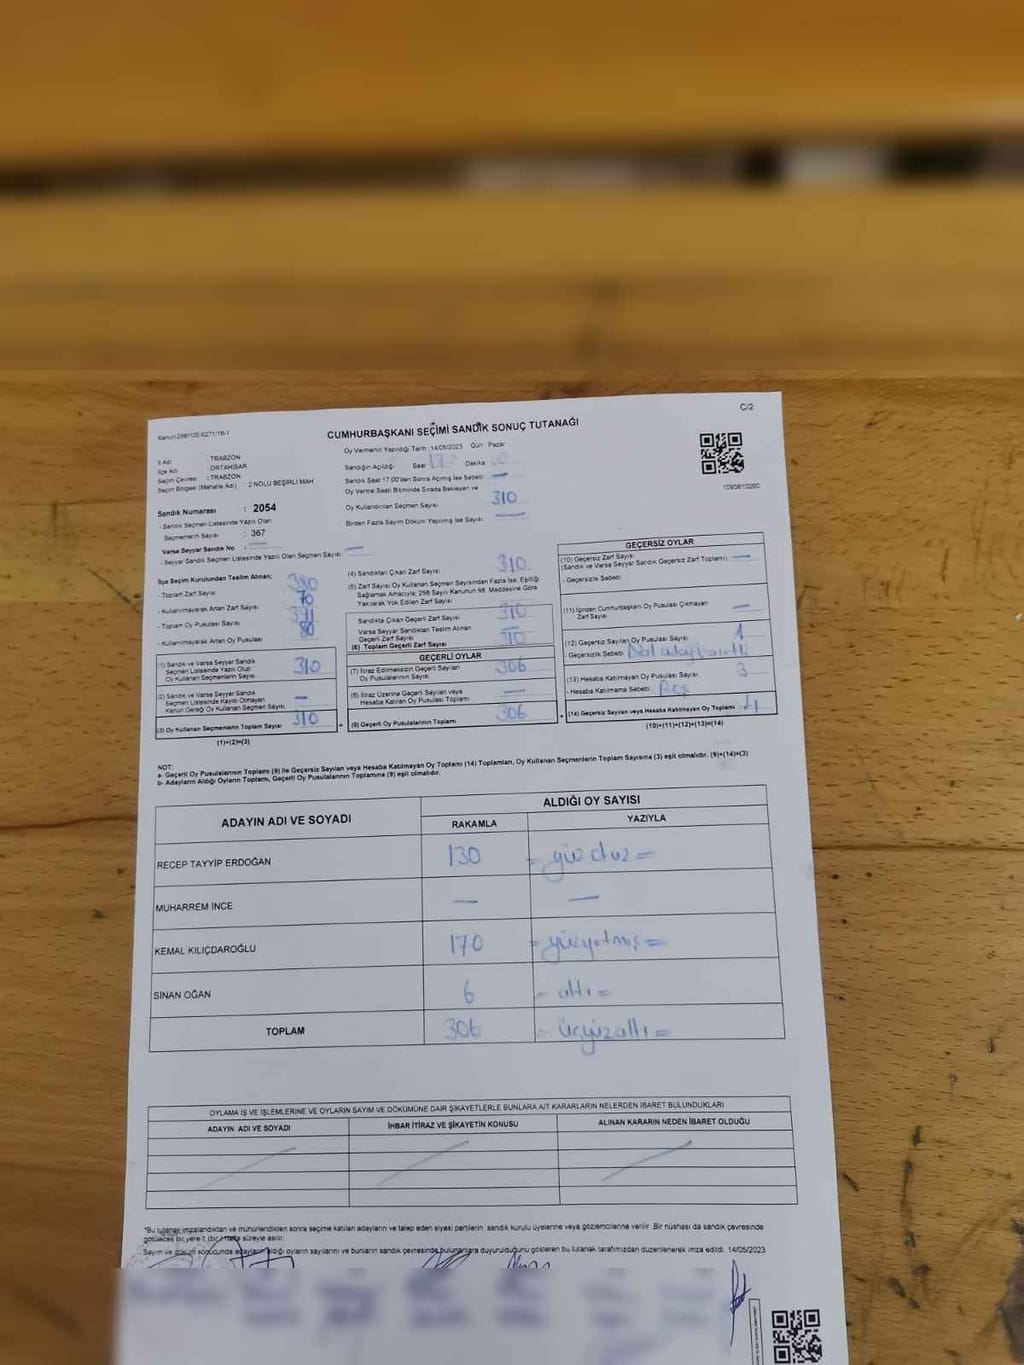 Kanun 298/105 6271/18-1
C/2
CUMHURBAŞKANI SEÇİMİ SANDIK SONUÇ TUTANAĞI
İl Adı : TRABZON
İlçe Adı : ORTAHİSAR
Seçim Çevresi : TRABZON
Seçim Bölgesi (Mahalle Adı) : 2 NOLU BEŞİRLİ MAH
Sandık Numarası : 2054
- Sandık Seçmen Listesinde Yazılı Olan
Seçmenlerin Sayısı : 367
Varsa Seyyar Sandık No : —
- Seyyar Sandık Seçmen Listesinde Yazılı Olan Seçmen Sayısı : —
Oy Vermenin Yapıldığı Tarih : 14/05/2023 Gün : Pazar
Sandığın Açıldığı Saat 17 Dakika
Sandık Saat 17.00'den Sonra Açılmış İse Sebebi —
Oy Verme Saati Bitiminde Sırada Bekleyen ve
Oy Kullandırılan Seçmen Sayısı 310
Birden Fazla Sayım Döküm Yapılmış İse Sayısı : —
1093810260
İlçe Seçim Kurulundan Teslim Alınan;
- Toplam Zarf Sayısı 380
- Kullanılmayarak Artan Zarf Sayısı 70
- Toplam Oy Pusulası Sayısı
- Kullanılmayarak Artan Oy Pusulası 80
(1) Sandık ve Varsa Seyyar Sandık
Seçmen Listesinde Yazılı Olup
Oy Kullanan Seçmenlerin Sayısı 310
(2) Sandık ve Varsa Seyyar Sandık
Seçmen Listesinde Kaydı Olmayan
Kanun Gereği Oy Kullanan Seçmen Sayısı —
(3) Oy Kullanan Seçmenlerin Toplam Sayısı 310
(1)+(2)=(3)
(4) Sandıktan Çıkan Zarf Sayısı 310
(5) Zarf Sayısı Oy Kullanan Seçmen Sayısından Fazla İse, Eşitliği
Sağlamak Amacıyla; 298 Sayılı Kanunun 98. Maddesine Göre
Yakılarak Yok Edilen Zarf Sayısı —
Sandıkta Çıkan Geçerli Zarf Sayısı 310
Varsa Seyyar Sandıktan Teslim Alınan
Geçerli Zarf Sayısı —
(6) Toplam Geçerli Zarf Sayısı 310
GEÇERLİ OYLAR
(7) İtiraz Edilmeksizin Geçerli Sayılan
Oy Pusulalarının Sayısı 306
(8) İtiraz Üzerine Geçerli Sayılan veya
Hesaba Katılan Oy Pusulası Toplamı —
(9) Geçerli Oy Pusulalarının Toplamı 306
GEÇERSİZ OYLAR
(10) Geçersiz Zarf Sayısı
(Sandık ve Varsa Seyyar Sandık Geçersiz Zarf Toplamı) —
- Geçersizlik Sebebi
(11) İçinden Cumhurbaşkanı Oy Pusulası Çıkmayan
Zarf Sayısı —
(12) Geçersiz Sayılan Oy Pusulası Sayısı 1
- Geçersizlik Sebebi
(13) Hesaba Katılmayan Oy Pusulası Sayısı 3
- Hesaba Katılmama Sebebi Boş
(14) Geçersiz Sayılan veya Hesaba Katılmayan Oy Toplamı 4
(10)+(11)+(12)+(13)=(14)
NOT:
a- Geçerli Oy Pusulalarının Toplamı (9) ile Geçersiz Sayılan veya Hesaba Katılmayan Oy Toplamı (14) Toplamları, Oy Kullanan Seçmenlerin Toplam Sayısına (3) eşit olmalıdır. (9)+(14)=(3)
b- Adayların Aldığı Oyların Toplamı, Geçerli Oy Pusulalarının Toplamına (9) eşit olmalıdır.
ADAYIN ADI VE SOYADI
ALDIĞI OY SAYISI
RAKAMLA YAZIYLA
RECEP TAYYİP ERDOĞAN 130 = yüzotuz =
MUHARREM İNCE — —
KEMAL KILIÇDAROĞLU 170 = yüzyetmiş =
SİNAN OĞAN 6 = altı =
TOPLAM 306 = üçyüzaltı =
OYLAMA İŞ VE İŞLEMLERİNE VE OYLARIN SAYIM VE DÖKÜMÜNE DAİR ŞİKAYETLERLE BUNLARA AİT KARARLARIN NELERDEN İBARET BULUNDUKLARI
ADAYIN ADI VE SOYADI İHBAR İTİRAZ VE ŞİKAYETİN KONUSU ALINAN KARARIN NEDEN İBARET OLDUĞU
*Bu tutanak imzalandıktan ve mühürlendikten sonra seçime katılan adayların ve talep eden siyasi partilerin sandık kurulu üyelerine veya gözlemcilerine verilir. Bir nüshası da sandık çevresinde
görülecek bir yere 1 (bir) hafta süreyle asılır.
Sayım ve döküm sonucunda adayların aldığı oyların sayılarını ve bunların sandık çevresinde bulunanlara duyurulduğunu gösteren bu tutanak tarafımızdan düzenlenerek imza edildi. 14/05/2023